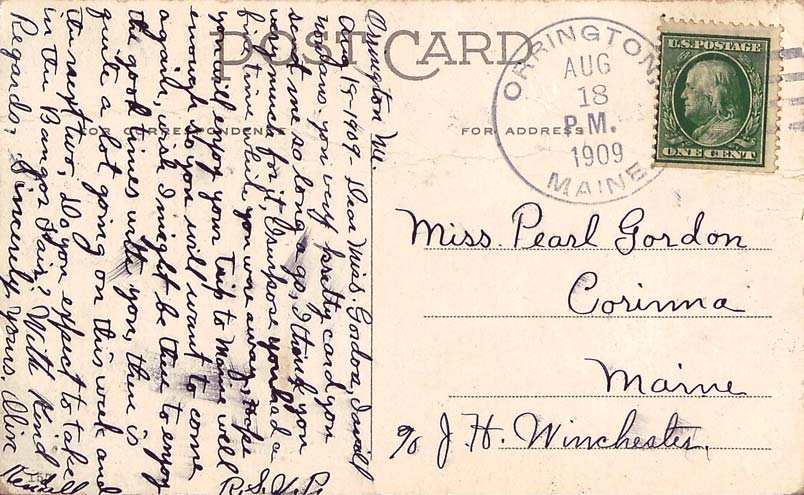 POST CARD
FOR CORRESPONDENCE
FOR ADDRESS
ORRINGTON,
AUG
18
P.M.
1909
MAINE
U.S. POSTAGE
ONE CENT
Miss. Pearl Gordon
Corinna
Maine
c/o J. H. Winchester.
Orrington Me.
Aug 19-1909- Dear Miss. Gordon,
you very pretty card you
sent me so long ago, I thank you
very much for it, Supose you had a
fine time while you were away, Hope
you will enjoy your trip to Maine well
enough so you will want to come
again, wish I might be there to enjoy
the good times with you, there is
quite a lot going on this week and
the next two, Do you expect to take
in the Bangor Fair? With Kind
Regards, Sincerely Yours. Olive
Kendall
R.S.V.P.